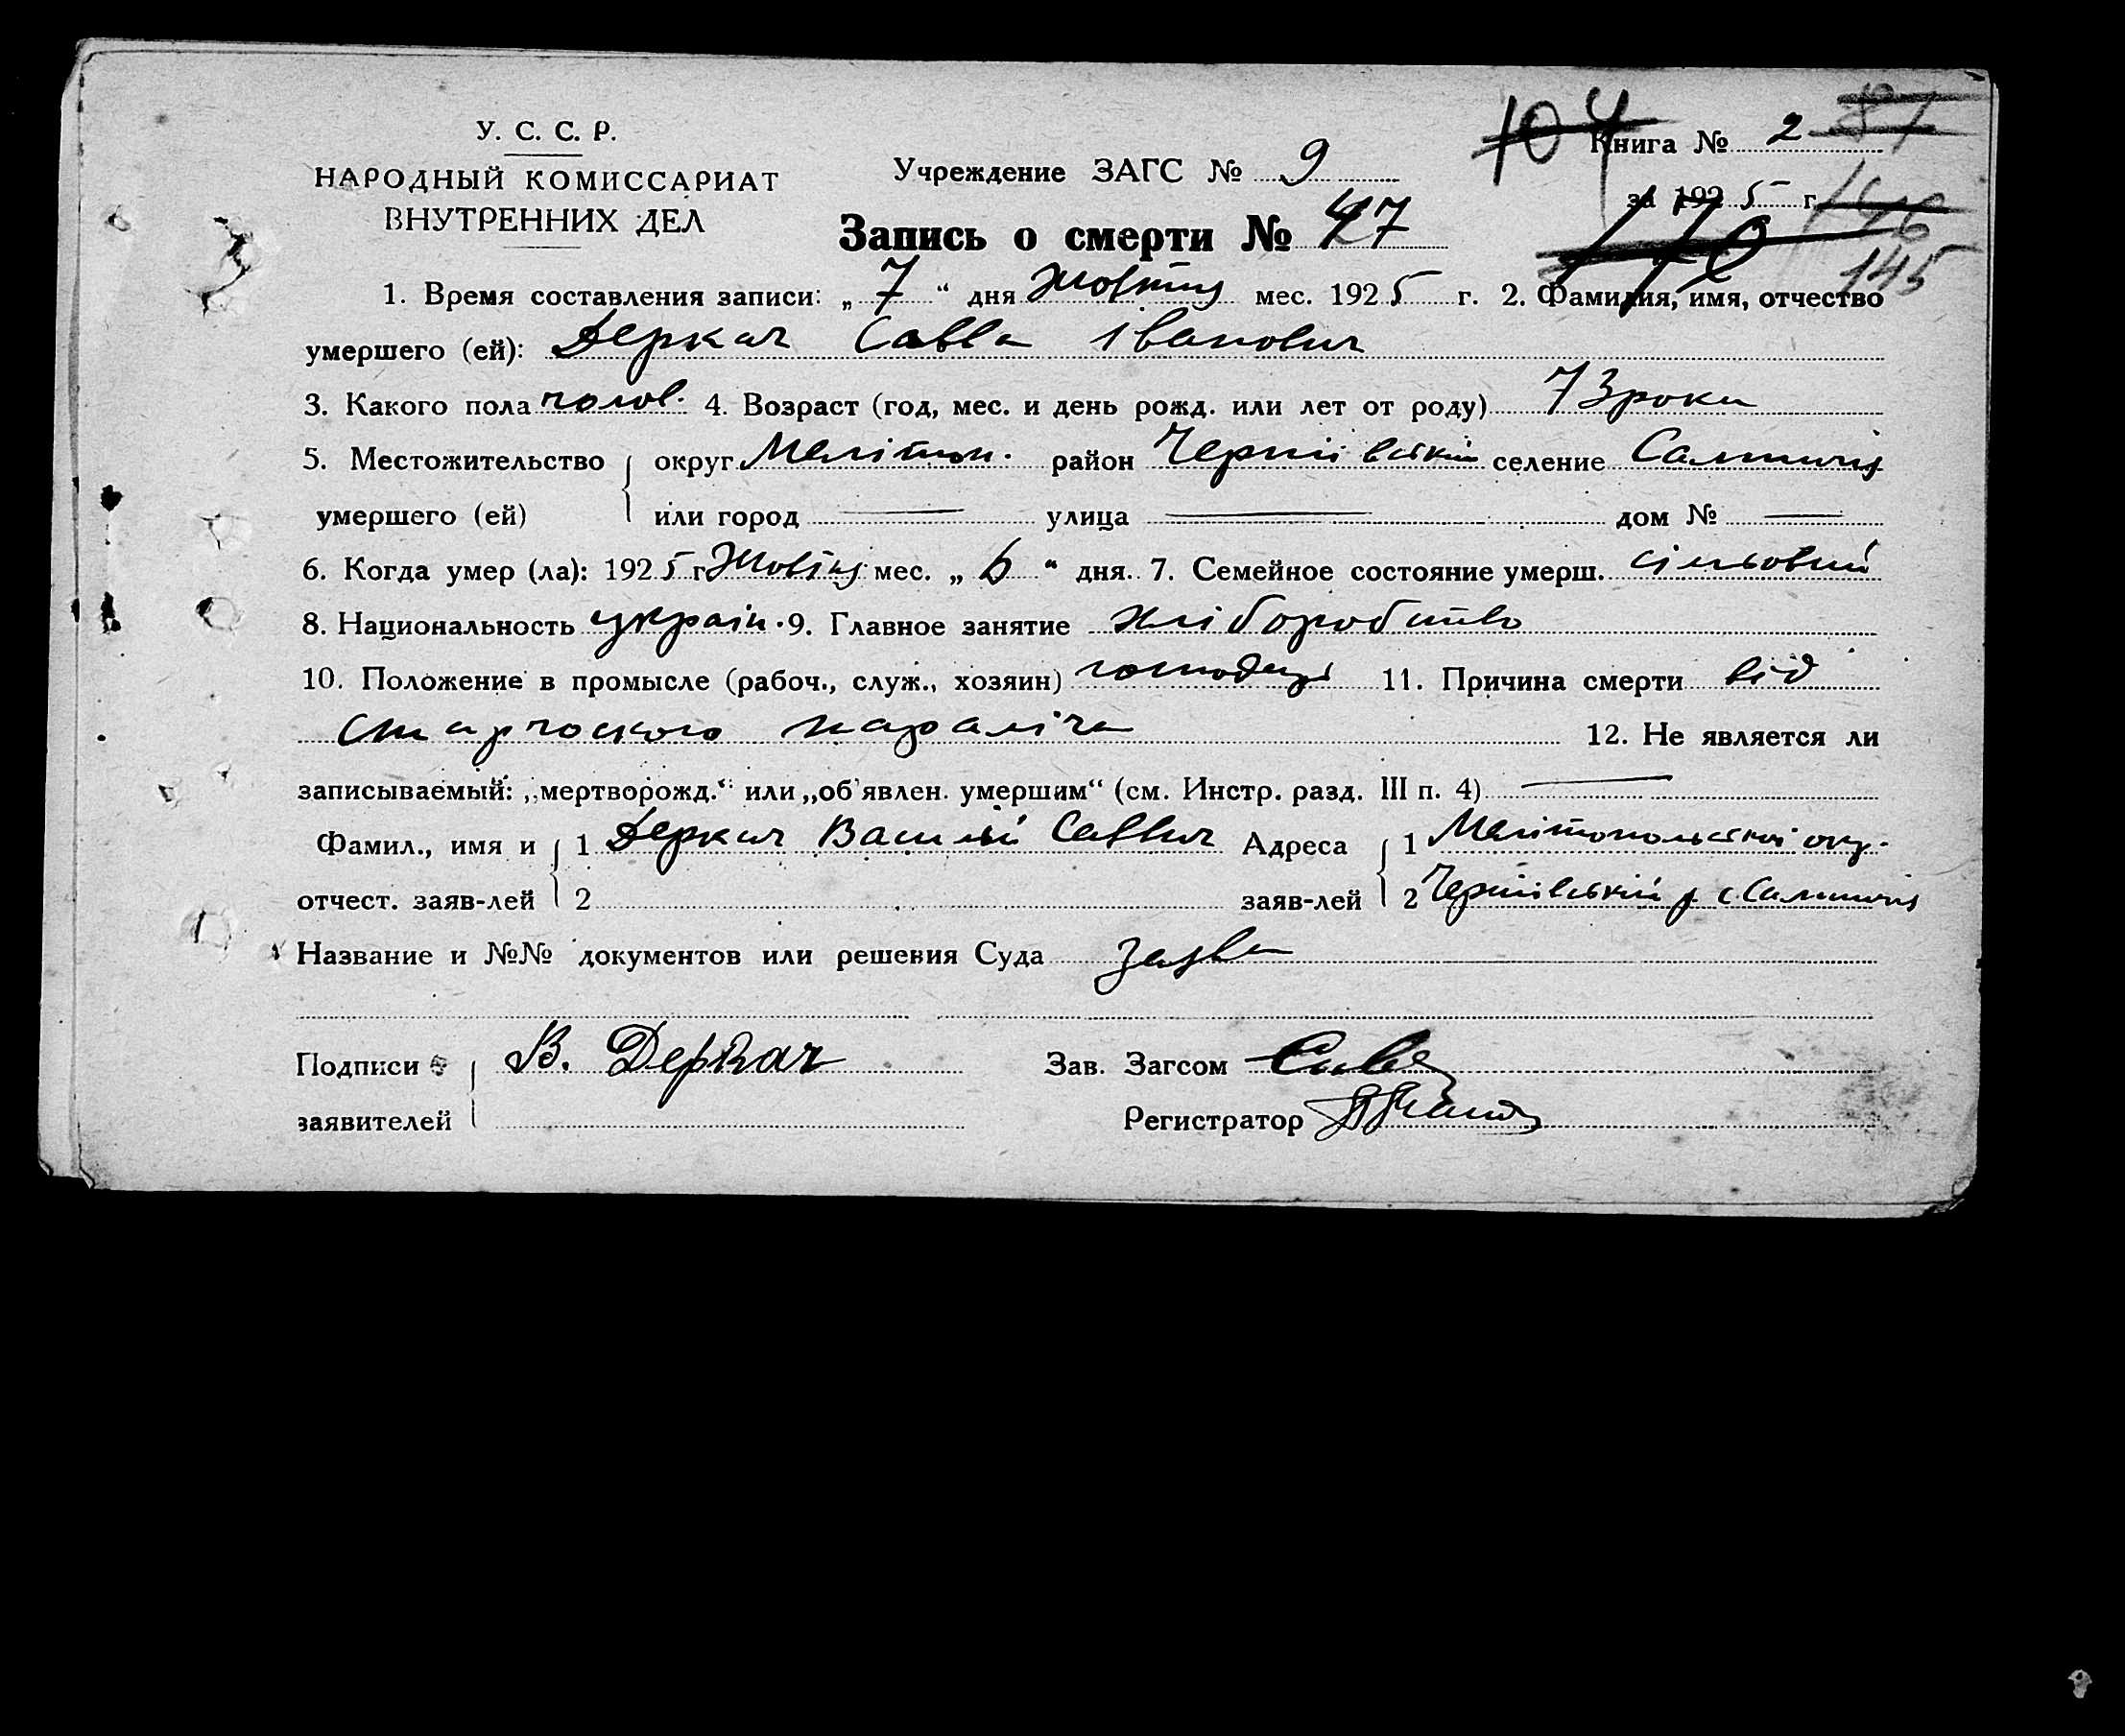 У. С. С. Р.
НАРОДНЫЙ КОМИССАРИАТ
ВНУТРЕННИХ ДЕЛ
Учреждение ЗАГС № 9
104 Книга № 2 87
за 1925 г. 146
Запись о смерти № 47
145
1. Время составления записи: „7“ дня Жовтня мес. 1925 г. 2. Фамилия, имя, отчество
умершего (ей): Деркач Савва Іванович
3. Какого пола чолов. 4. Возраст (год, мес. и день рожд. или лет от роду) 73 роки
5. Местожительство округ Мелітоп. район Чернівський селение
умершего (ей) или город — улица — дом № —
6. Когда умер (ла): 1925 г. Жовтня мес. „6“ дня. 7. Семейное состояние умерш.
8. Национальность україн. 9. Главное занятие хліборобство
10. Положение в промысле (рабоч., служ., хозяин) господар 11. Причина смерти від
старчоского параліча 12. Не является ли
записываемый: „мертворожд.“ или „об'явлен. умершим“ (см. Инстр. разд. III п. 4) —
Фамил., имя и 1 Деркач Василій Саввич Адреса 1 Мелітопольської окр.
отчест. заяв-лей 2 заяв-лей 2 Чернівський р. с.
Название и №№ документов или решения Суда заява
Подписи В. Деркач Зав. Загсом
заявителей Регистратор